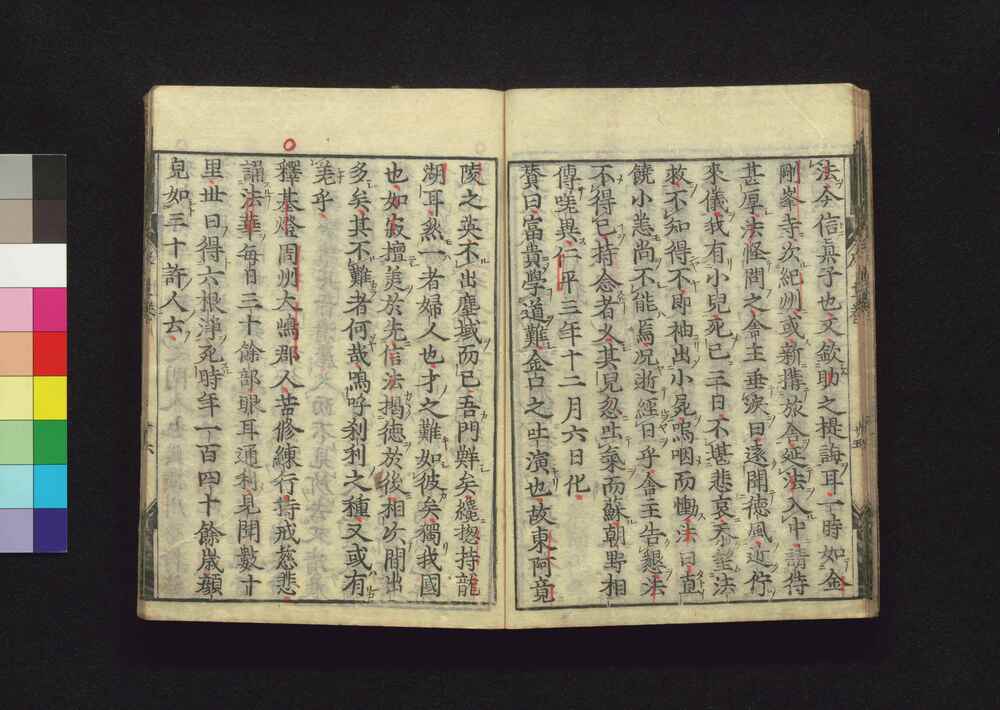 法今信眞子也文欽助之提誨耳一時如金
剛峯寺次紀州或新搆旅舍延法入中請待
甚厚法怪問之舍主垂涙曰遠聞德風近佇
來儀我有小兒死已三日不堪悲哀希垂法
救不知得不即袖出小屍嗚咽而慟法曰直
饒小恙尚不能焉况逝經日乎舍主告懇法
不得已持念者久其兒忽吐氣而蘇朝野相
傳嗟異仁平三年十二月六日化
賛曰富貴學道難金口之吐演也故東阿竟
陵之英不出塵域而已吾門鮮矣纔摠持龍
湖耳然一者婦人也才之難如彼矣獨我國
也如寂擅美於先信法揭德於後相次間出
多矣其不難者何哉嗚呼刹利之種又或有
毫乎
釋基燈周州大嶋郡人苦修練行持戒慈悲
誦法華每日三十餘部眼耳通利見聞數十
里世曰得六根淨死時年一百四十餘歲顏
皃如三十許人云